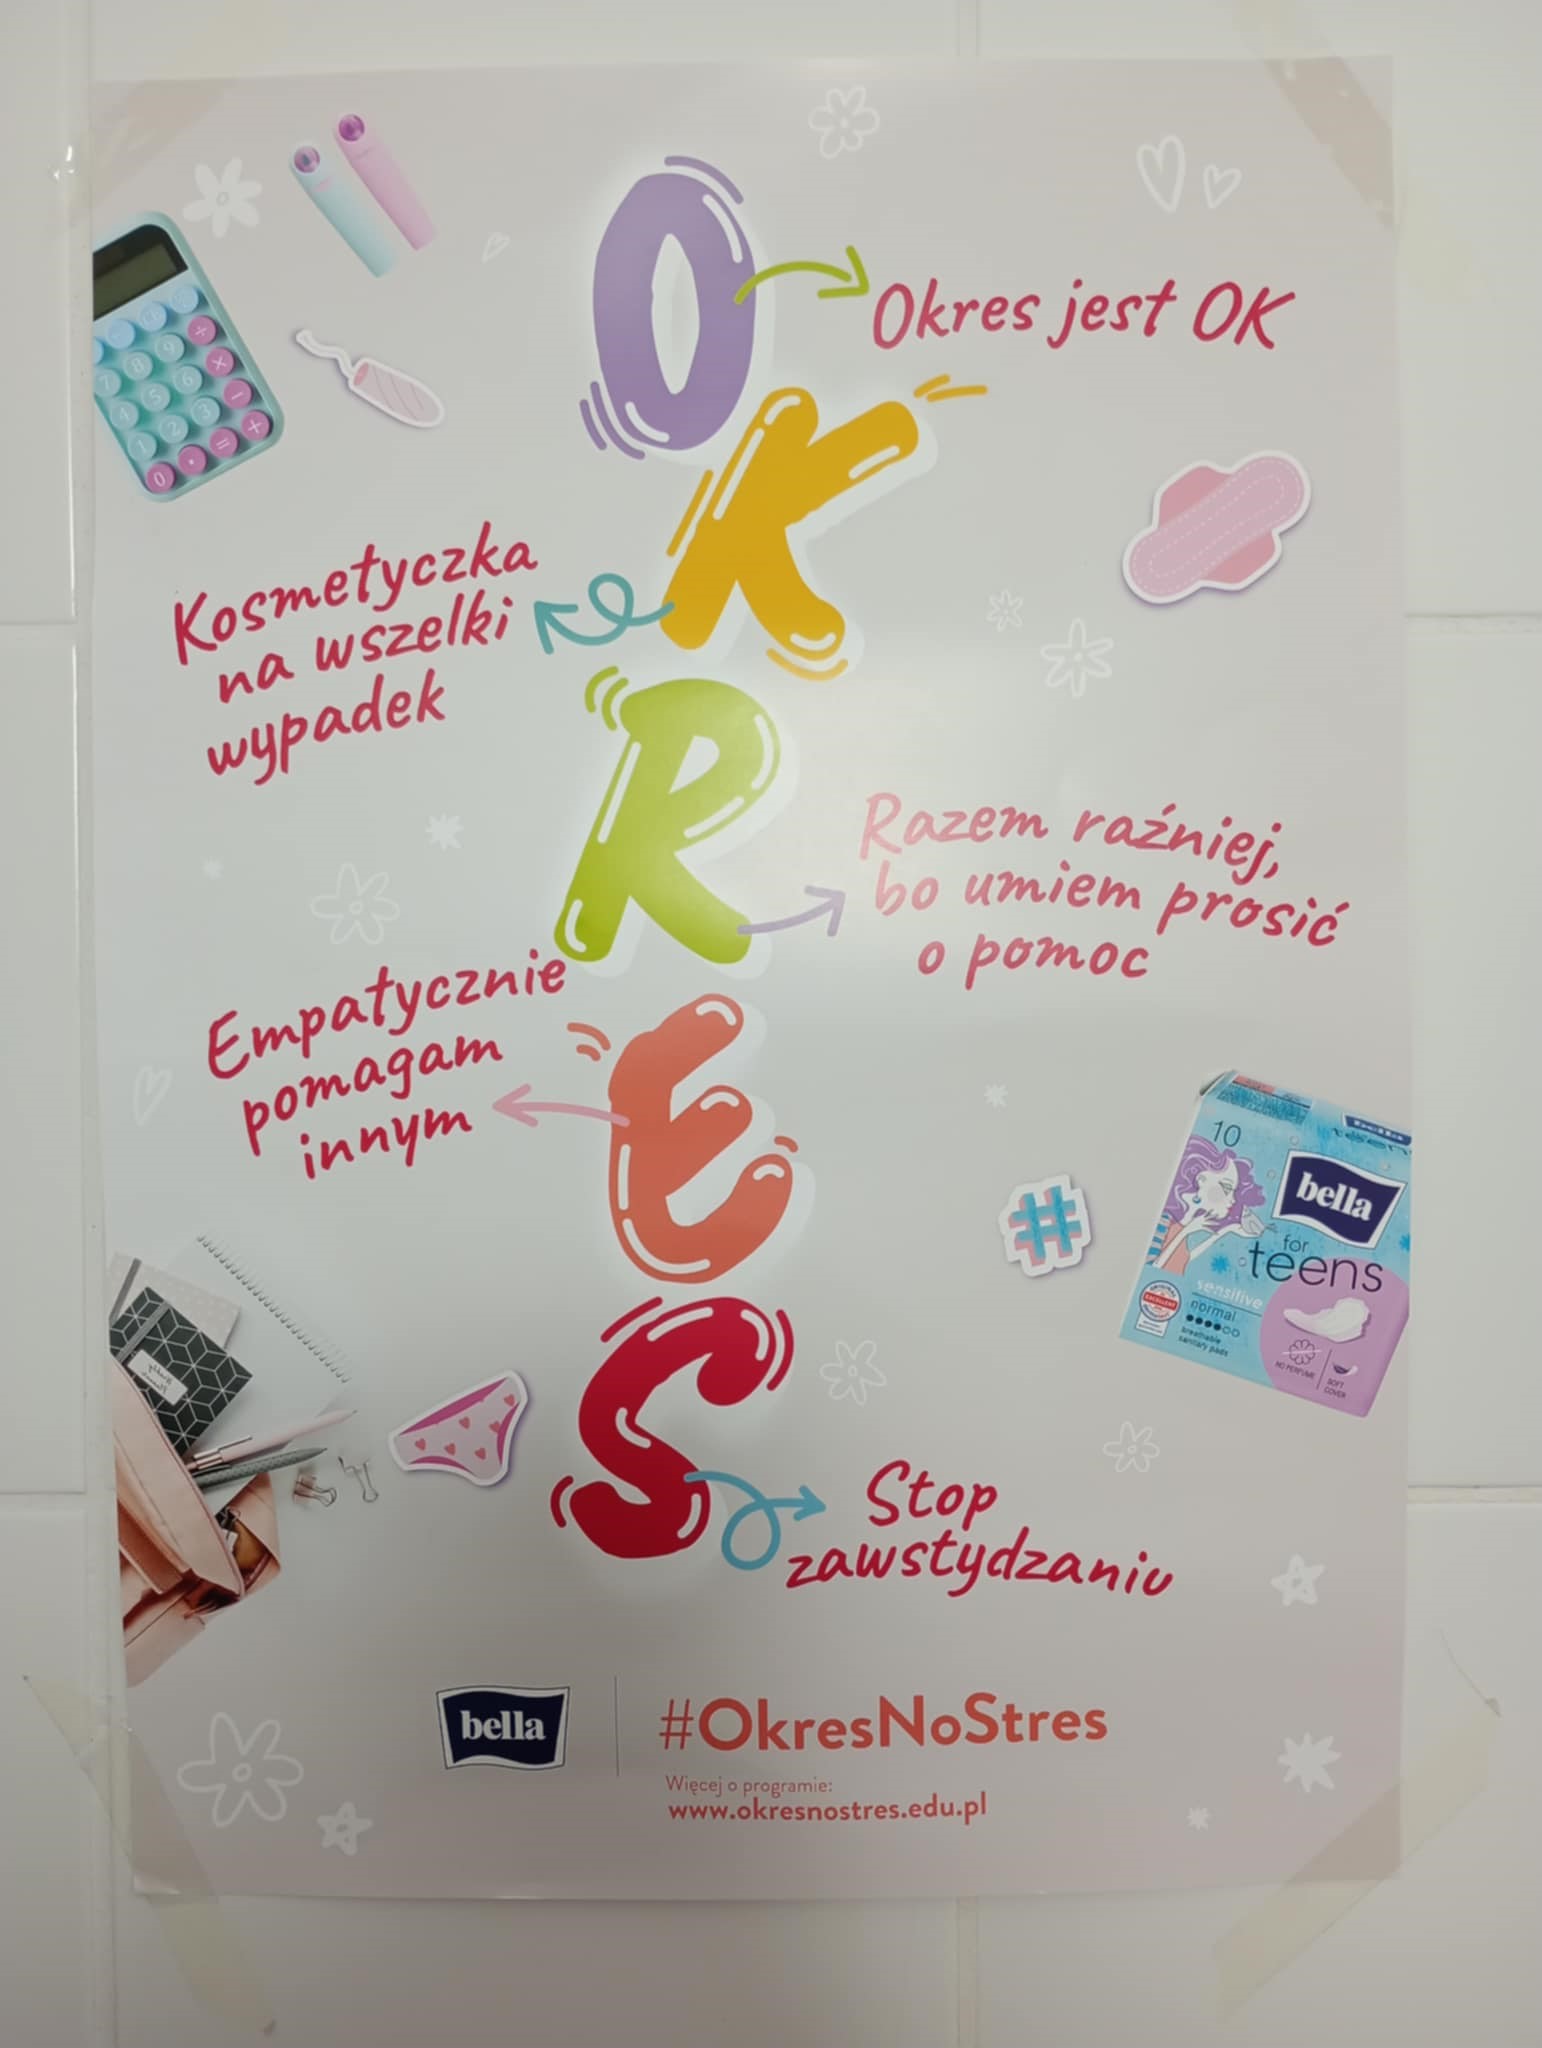 O
K
R
E
S
Okres jest OK
Kosmetyczka
na wszelki
wypadek
Razem raźniej,
bo umiem prosić
o pomoc
Empatycznie
pomagam
innym
Stop
zawstydzaniu
7 8 9 ×
4 5 6 −
1 2 3 +
0 . =
bella
10
bella
for
teens
sensitive
normal
breathable
sanitary pads
EXCELLENT
NO PERFUME
SOFT
COVER
#
bella
#OkresNoStres
Więcej o programie:
www.okresnostres.edu.pl